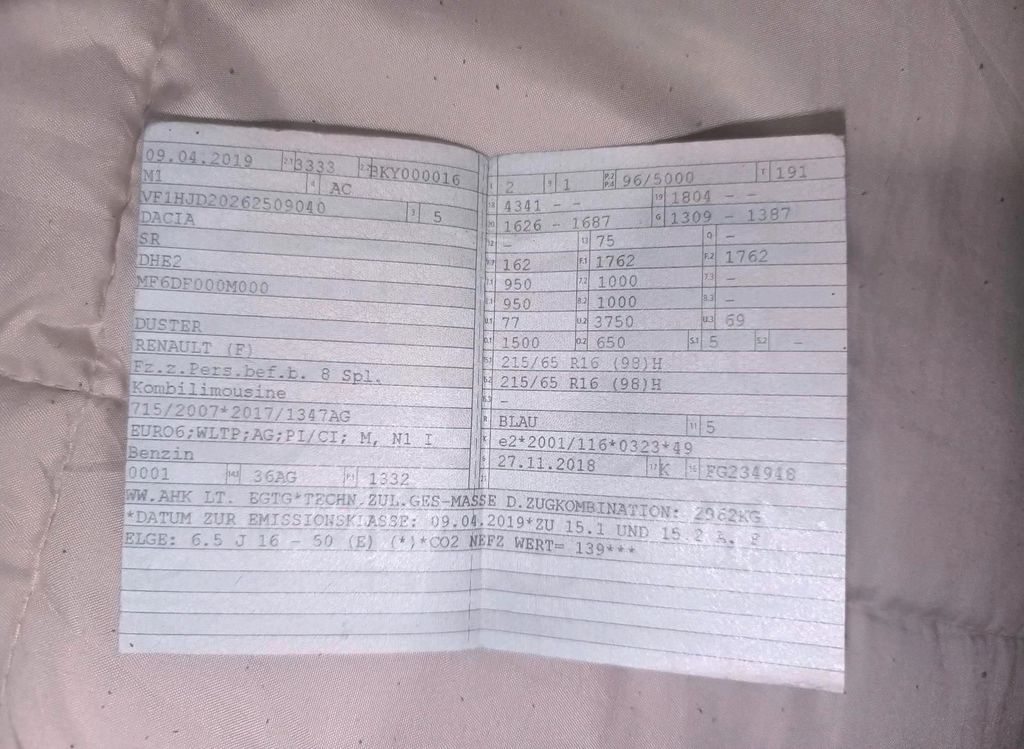 09.04.2019 2.1 3333 2.2 BKY000016
M1 4 AC
VF1HJD20262509040 3 5
DACIA
SR
DHE2
MF6DF000M000
DUSTER
RENAULT (F)
Fz.z.Pers.bef.b. 8 Spl.
Kombilimousine
715/2007*2017/1347AG
EURO6;WLTP;AG;PI/CI; M, N1 I
Benzin
0001 14.1 36AG P.1 1332
L 2 9 1 P.2 P.4 96/5000 T 191
18 4341 - - 19 1804 - -
20 1626 - 1687 G 1309 - 1387
12 - 13 75 Q -
V.7 162 F.1 1762 F.2 1762
7.1 950 7.2 1000 7.3 -
8.1 950 8.2 1000 8.3 -
U.1 77 U.2 3750 U.3 69
O.1 1500 O.2 650 S.1 5 S.2 -
15.1 215/65 R16 (98)H
15.2 215/65 R16 (98)H
15.3 -
R BLAU 11 5
K e2*2001/116*0323*49
6 27.11.2018 17 K 16 FG234948
21
WW.AHK LT. EGTG*TECHN.ZUL.GES-MASSE D.ZUGKOMBINATION: 2962KG
*DATUM ZUR EMISSIONSKLASSE: 09.04.2019*ZU 15.1 UND 15.2 A. F
ELGE: 6.5 J 16 - 50 (E) (*)*CO2 NEFZ WERT= 139***